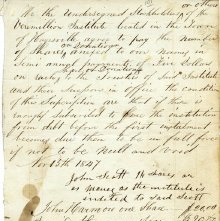 or others
We the undersigned Stockholders of the
Vermillion Institute located in the Town
of Haysville agree to pay the number
or Donations
of Shares annexed to our Names in
Semi annual payments of Five Dollars
Shares or Donations
on each, to the Trustees of Said Institute
and their Successors in office the condition
of this Subscription are that if there is
enough subscribed to free the institution
from debt before the first instalment
becomes due then to be in full force
if not to be Null and Void
Nov 13th 1847
John Scott 14 Shares or
as much as the institute is
indebted to said Scott
John Harmon one Share